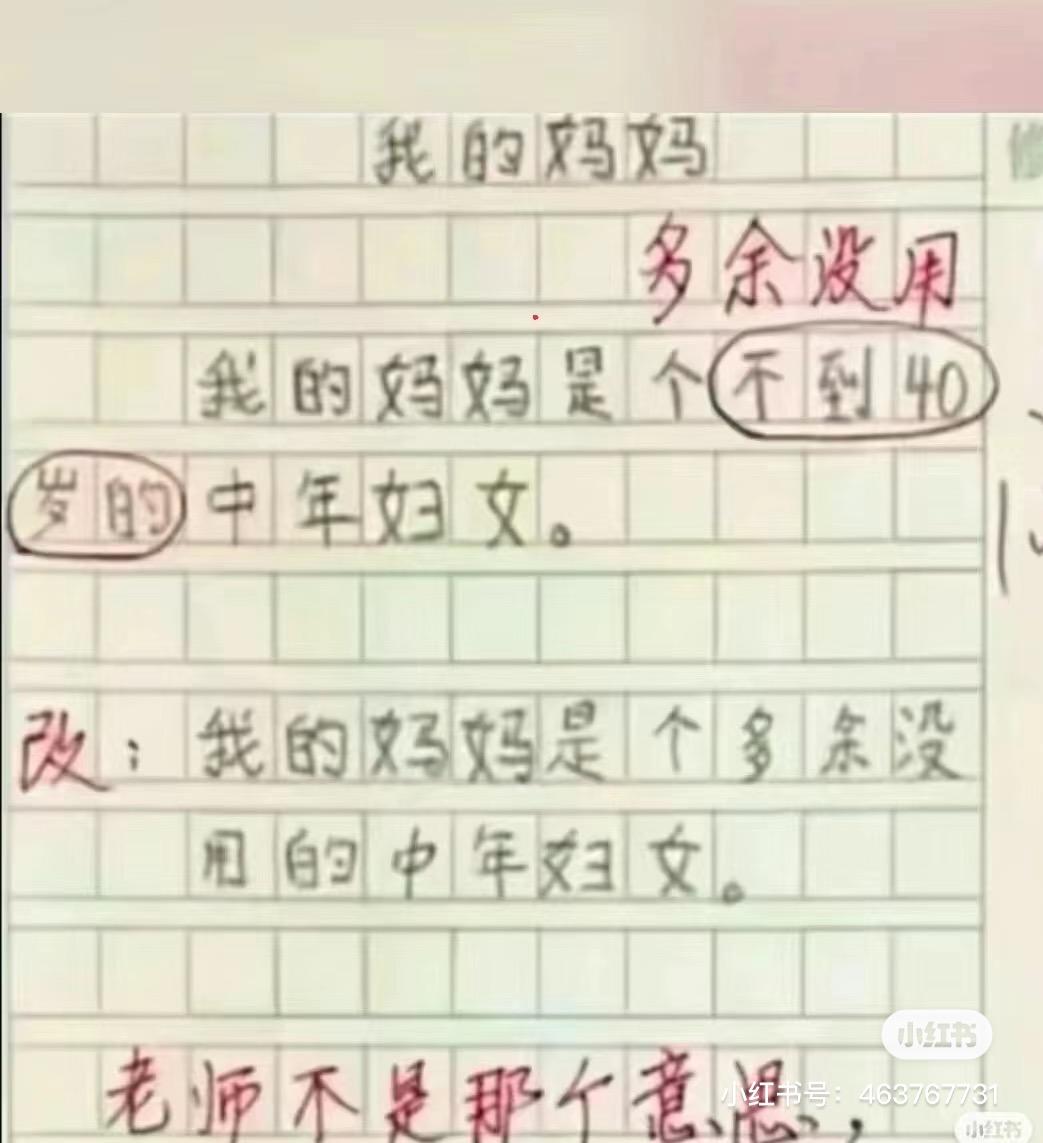 我的妈妈
多余没用
我的妈妈是个不到40
岁的中年妇女。
改：我的妈妈是个多余没
用的中年妇女。
小红书
老师不是那个意思，
小红书号：463767731
小红书